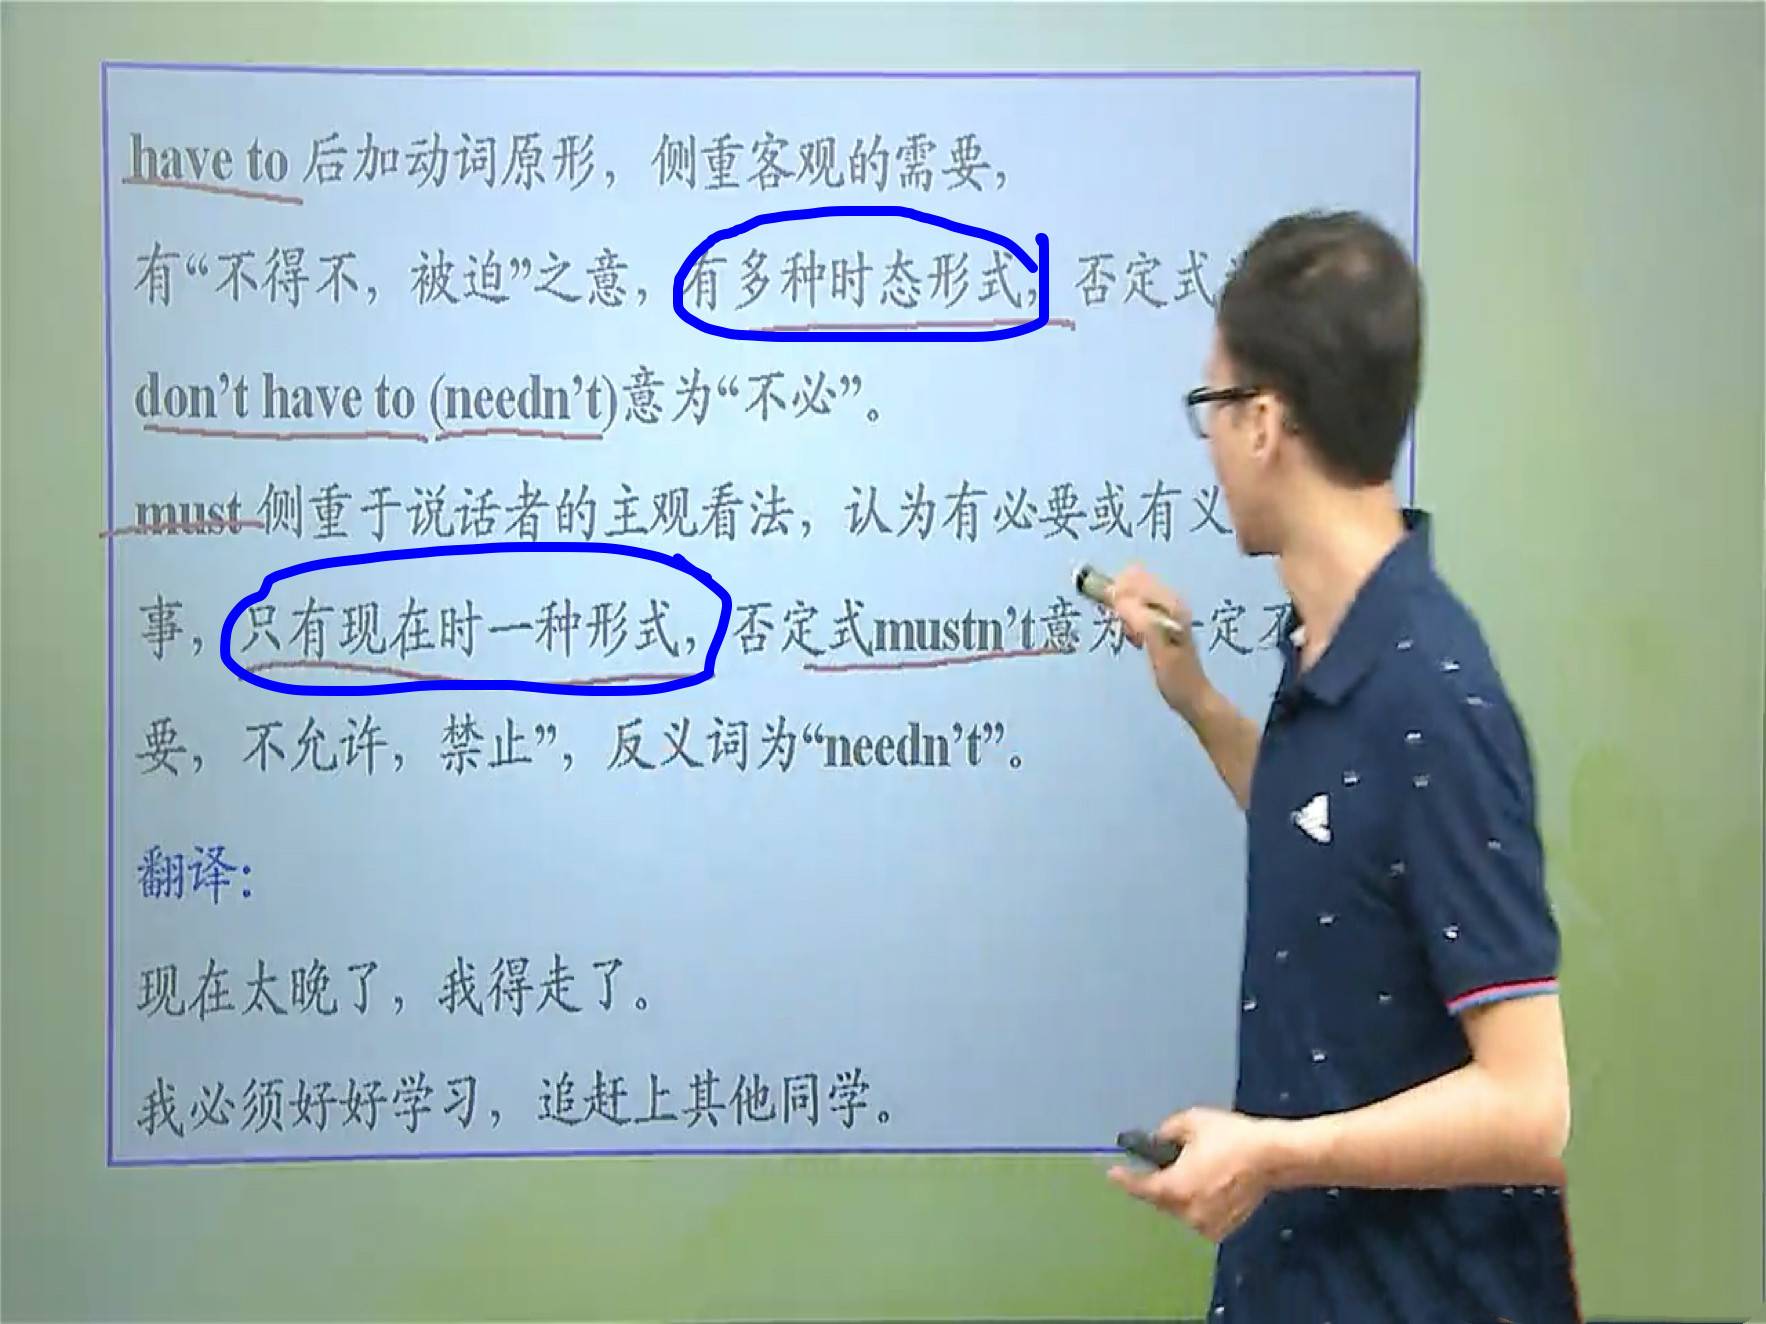 have to 后加动词原形，侧重客观的需要，
有“不得不，被迫”之意，有多种时态形式，否定式
don’t have to (needn’t)意为“不必”。
must 侧重于说话者的主观看法，认为有必要或有义
事，只有现在时一种形式，否定式mustn’t意为 一定不
要，不允许，禁止”，反义词为“needn’t”。
翻译：
现在太晚了，我得走了。
我必须好好学习，追赶上其他同学。